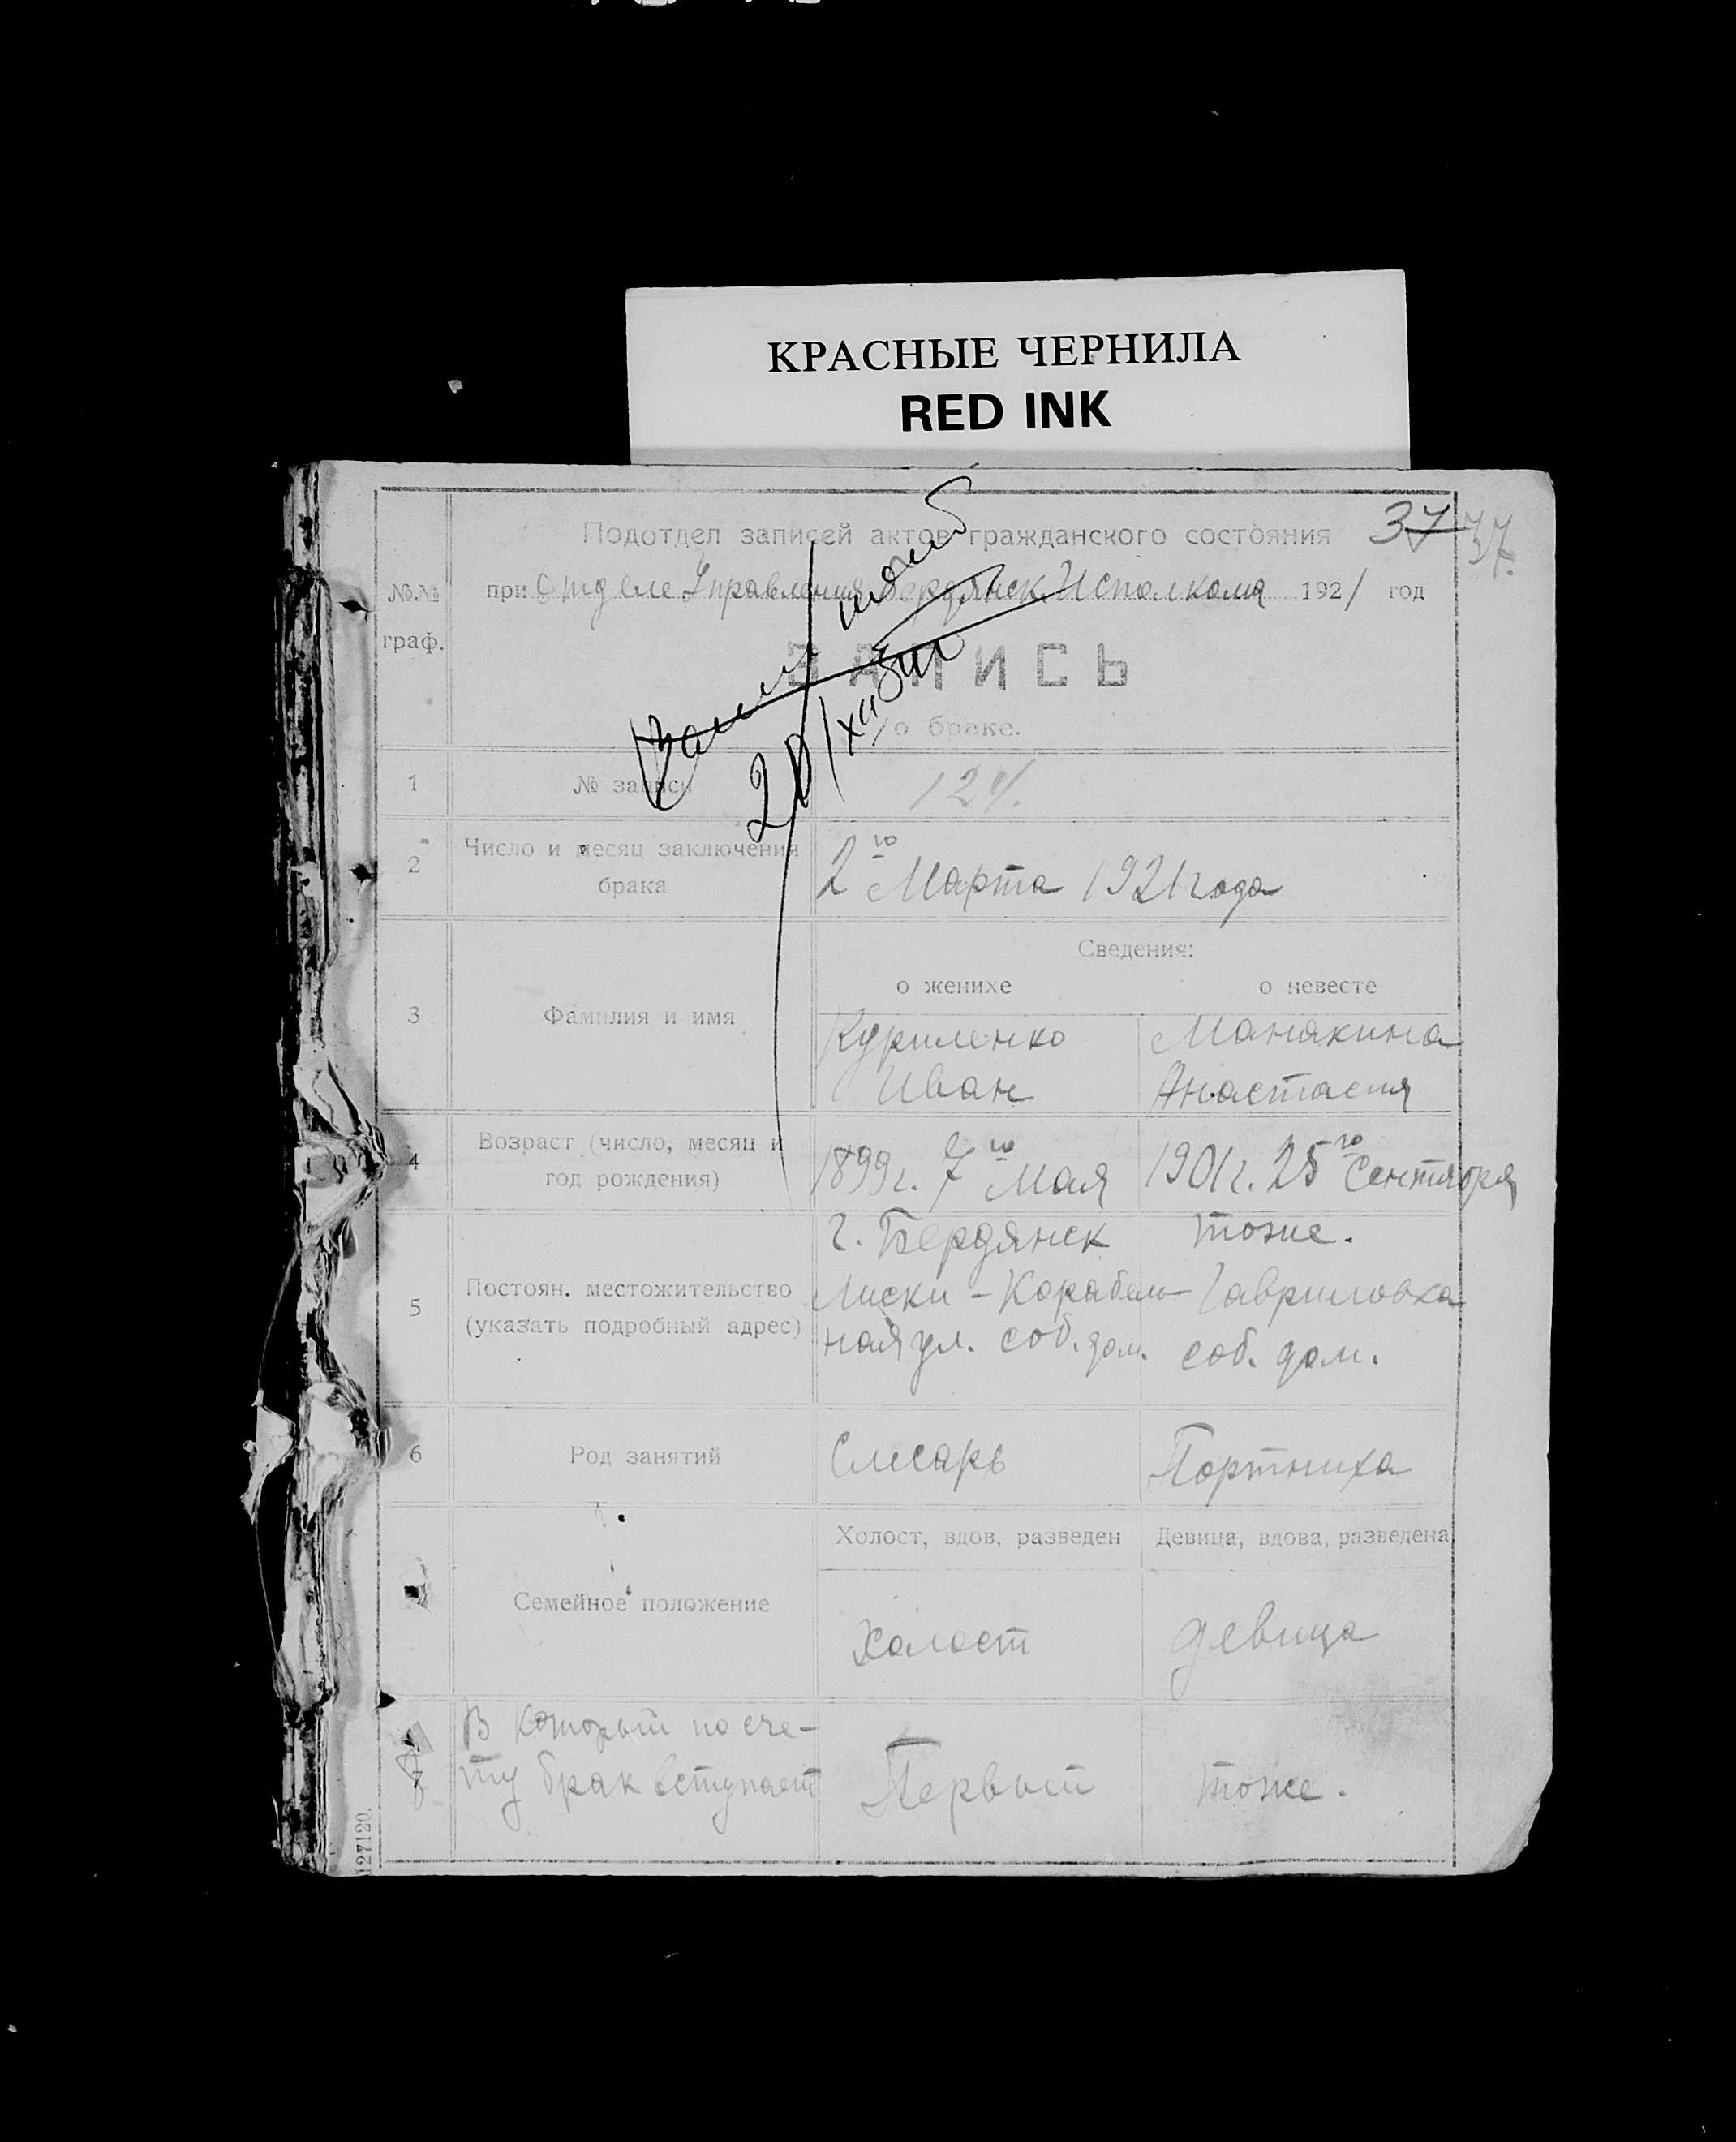 КРАСНЫЕ ЧЕРНИЛА
RED INK
37 37.
Подотдел записей актов гражданского состояния
№№ граф.
при Отделе Управления Бердянск. Исполкома 1921 год
ЗАПИСЬ
о браке.
20/XII
1 № записи 124.
2 Число и месяц заключения брака
2го Марта 1921 года
Сведения:
о женихе о невесте
3 Фамилия и имя
Куриленко Манякина
Иван Анастасия
4 Возраст (число, месяц и год рождения)
1899г. 7го Мая 1901г. 25го Сентября
5 Постоян. местожительство (указать подробный адрес)
г. Бердянск тоже.
Лиски - Корабель- Гавриловка
ная ул. соб. дом. соб. дом.
6 Род занятий
Слесарь Портниха
Холост, вдов, разведен Девица, вдова, разведена
Семейное положение
Холост девица
8
В который по сче-
ту брак вступает
Первый тоже.
127120.